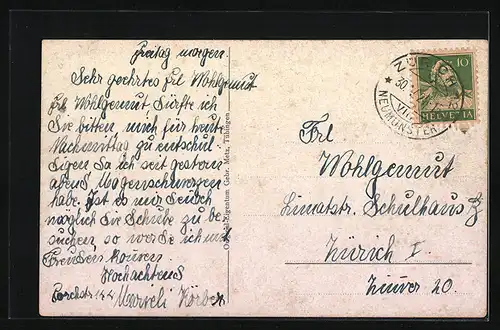 Freitag morgen.
Sehr geehrtes Frl Wohlgemut
Frl Wohlgemut, Dürfte ich
Sie bitten, mich für heute
Nachmittag zu entschul-
digen da ich seit gestern
abend Magenschmerzen
habe. Ist es mir Jedoch
möglich die Schule zu be-
suchen, so werde ich mit
Freuden kommen.
Hochachtend
Forchstr. Körber
Original-Eigentum Gebr. Metz, Tübingen
ZÜRICH
30
VII
NEUMÜNSTER
10
HELVETIA
Frl
Wohlgemut
Limatstr. Schulhaus
Zürich I.
Zimmer 20.